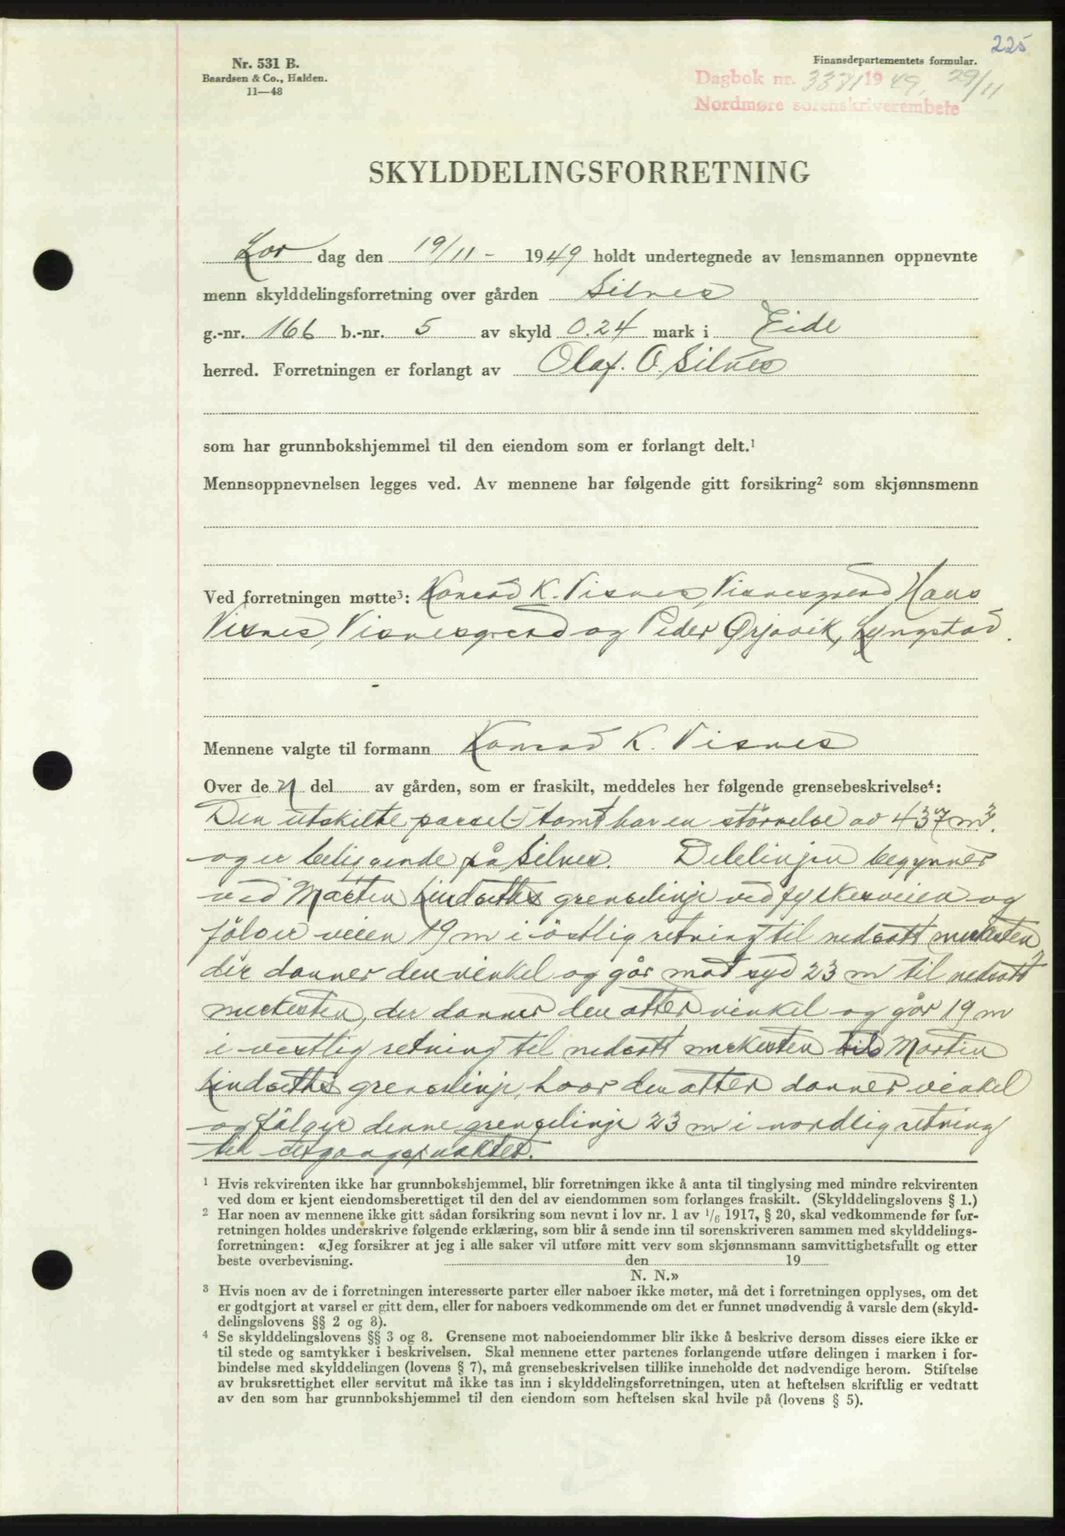 225
Nr. 531 B.
Baardsen & Co., Halden.
11—48
Finansdepartementets formular.
Dagbok nr. 3371 1949, 29/11
Nordmøre sorenskriverembete
SKYLDDELINGSFORRETNING
Lør dag den 19/11 - 1949 holdt undertegnede av lensmannen oppnevnte
menn skylddelingsforretning over gården Silnes
g.-nr. 166 b.-nr. 5 av skyld 0.24 mark i Eide
herred. Forretningen er forlangt av Olaf. O. Silnes
som har grunnbokshjemmel til den eiendom som er forlangt delt.¹
Mennsoppnevnelsen legges ved. Av mennene har følgende gitt forsikring² som skjønnsmenn
Ved forretningen møtte³: Konrad K. Visnes, Visnesgrend Hans
Visnes, Visnesgrend og Peder Ørjavik, Lyngstad.
Mennene valgte til formann Konrad K. Visnes
Over de n del av gården, som er fraskilt, meddeles her følgende grensebeskrivelse⁴:
Den utskilte parsel-tomt har en störrelse av 437 m².
og er beliggende på Silnes. Delelinjen begynner
ved Martin Lindseths grenselinje ved fylkesveien og
fölger veien 19 m i östlig retning til nedsatt merkesten,
der danner den vinkel og går mot syd 23 m til nedsatt
merkesten, der danner den atter vinkel og går 19 m
i vestlig retning til nedsatt merkesten Martin
Lindseths grenselinje, hvor den atter danner vinkel
og fölger denne grenselinje 23 m i nordlig retning
til utgangspunktet.
¹ Hvis rekvirenten ikke har grunnbokshjemmel, blir forretningen ikke å anta til tinglysing med mindre rekvirenten
ved dom er kjent eiendomsberettiget til den del av eiendommen som forlanges fraskilt. (Skylddelingslovens § 1.)
² Har noen av mennene ikke gitt sådan forsikring som nevnt i lov nr. 1 av ¹/₆ 1917, § 20, skal vedkommende før for-
retningen holdes underskrive følgende erklæring, som blir å sende inn til sorenskriveren sammen med skylddelings-
forretningen: «Jeg forsikrer at jeg i alle saker vil utføre mitt verv som skjønnsmann samvittighetsfullt og etter
beste overbevisning. den 19
N. N.»
³ Hvis noen av de i forretningen interesserte parter eller naboer ikke møter, må det i forretningen opplyses, om det
er godtgjort at varsel er gitt dem, eller for naboers vedkommende om det er funnet unødvendig å varsle dem (skyld-
delingslovens §§ 2 og 8).
⁴ Se skylddelingslovens §§ 3 og 8. Grensene mot naboeiendommer blir ikke å beskrive dersom disses eiere ikke er
til stede og samtykker i beskrivelsen. Skal mennene etter partenes forlangende utføre delingen i marken i for-
bindelse med skylddelingen (lovens § 7), må grensebeskrivelsen tillike inneholde det nødvendige herom. Stiftelse
av bruksrettighet eller servitut må ikke tas inn i skylddelingsforretningen, uten at heftelsen skriftlig er vedtatt
av den som har grunnbokshjemmel til den eiendom som heftelsen skal hvile på (lovens § 5).